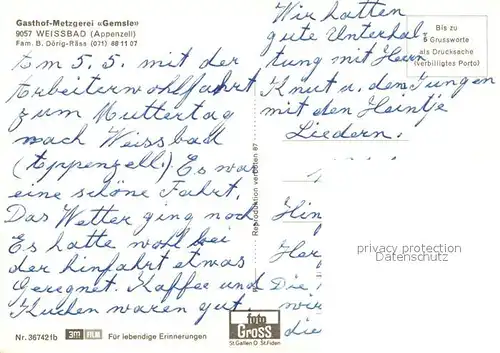 Gasthof-Metzgerei «Gemsle»
9057 WEISSBAD (Appenzell)
Fam. B. Dörig-Räss (071) 88 11 07
Am 5.5. mit der
Arbeiterwohlfahrt
zum Muttertag
nach Weissbad
(Appenzell). Es war
eine schöne Fahrt.
Das Wetter ging noch
Es hatte wohl bei
der hinfahrt etwas
geregnet. Kaffee und
Kuchen waren gut.
Nr. 367421b
3M FILM
Für lebendige Erinnerungen
Reproduktion verboten 87
Wir hatten
gute Unterhal-
tung mit Herrn
Knut u. den Jungen
mit den Heintje
Liedern.
Hin
Her
Die
wir
die
Bis zu
5 Grussworte
als Drucksache
(verbilligtes Porto)
privacy protection
Datenschutz
foto
GROSS
St.Gallen O St.Fiden